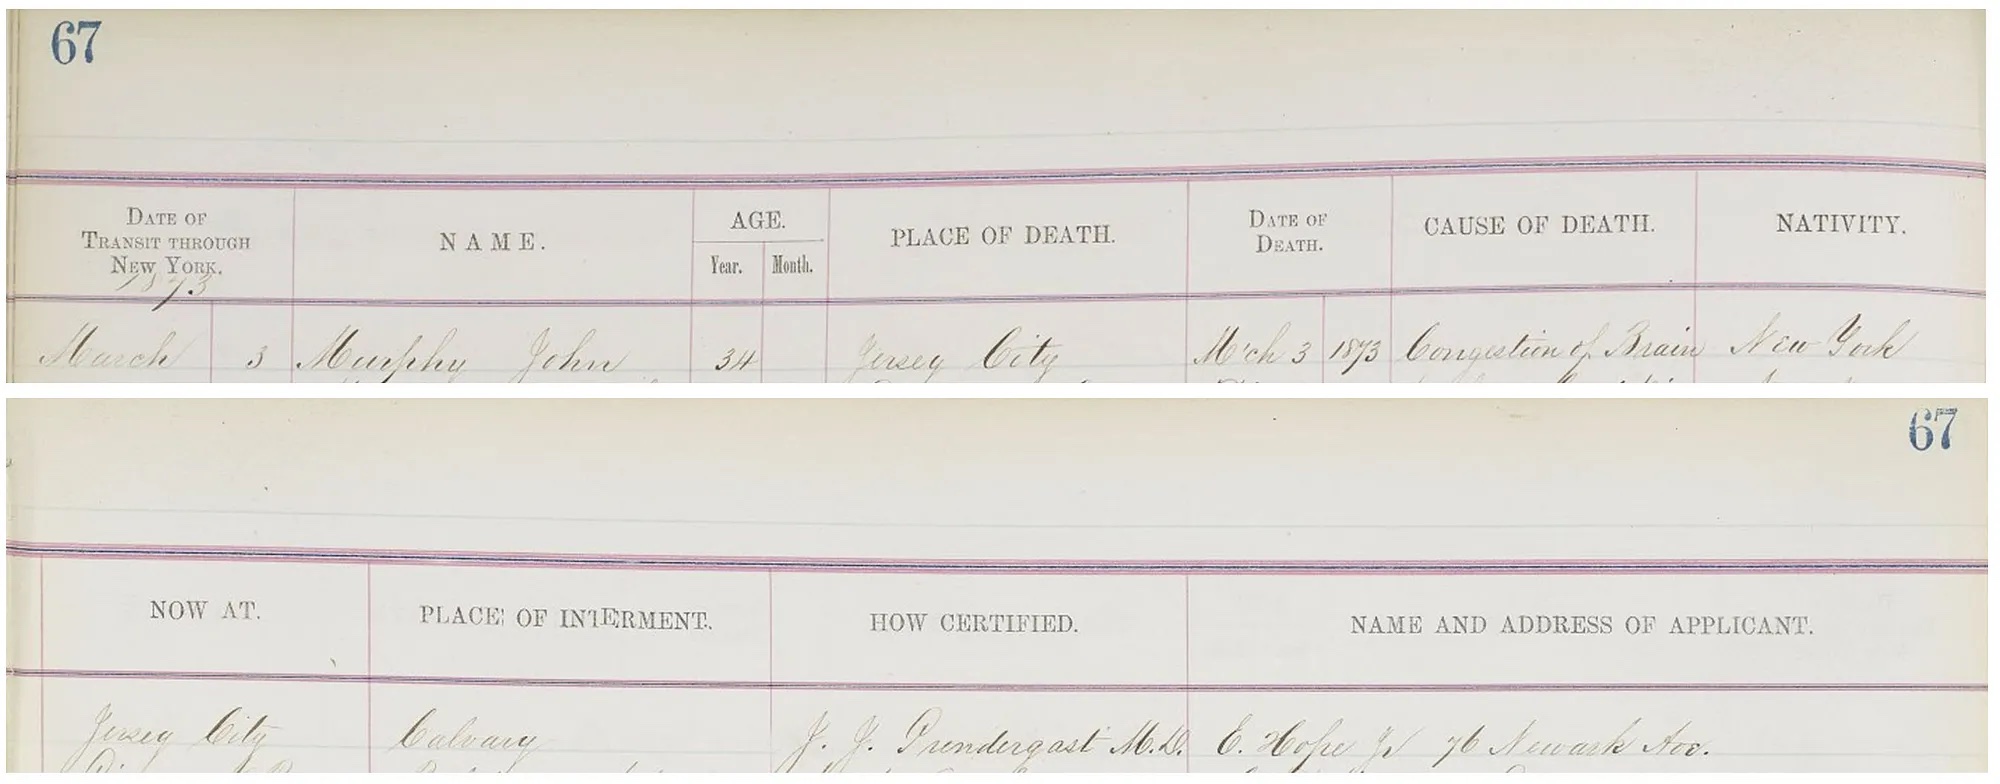 67
DATE OF
TRANSIT THROUGH
NEW YORK.
1873
NAME.
AGE.
Year. Month.
PLACE OF DEATH.
DATE OF
DEATH.
CAUSE OF DEATH.
NATIVITY.
March 3 Murphy John 34 Jersey City M'ch 3 1873 Congestion of Brain New York
67
NOW AT. PLACE OF INTERMENT. HOW CERTIFIED. NAME AND ADDRESS OF APPLICANT.
Jersey City Calvary J. J. Prendergast M.D. E. Hope Jr 76 Newark Ave.